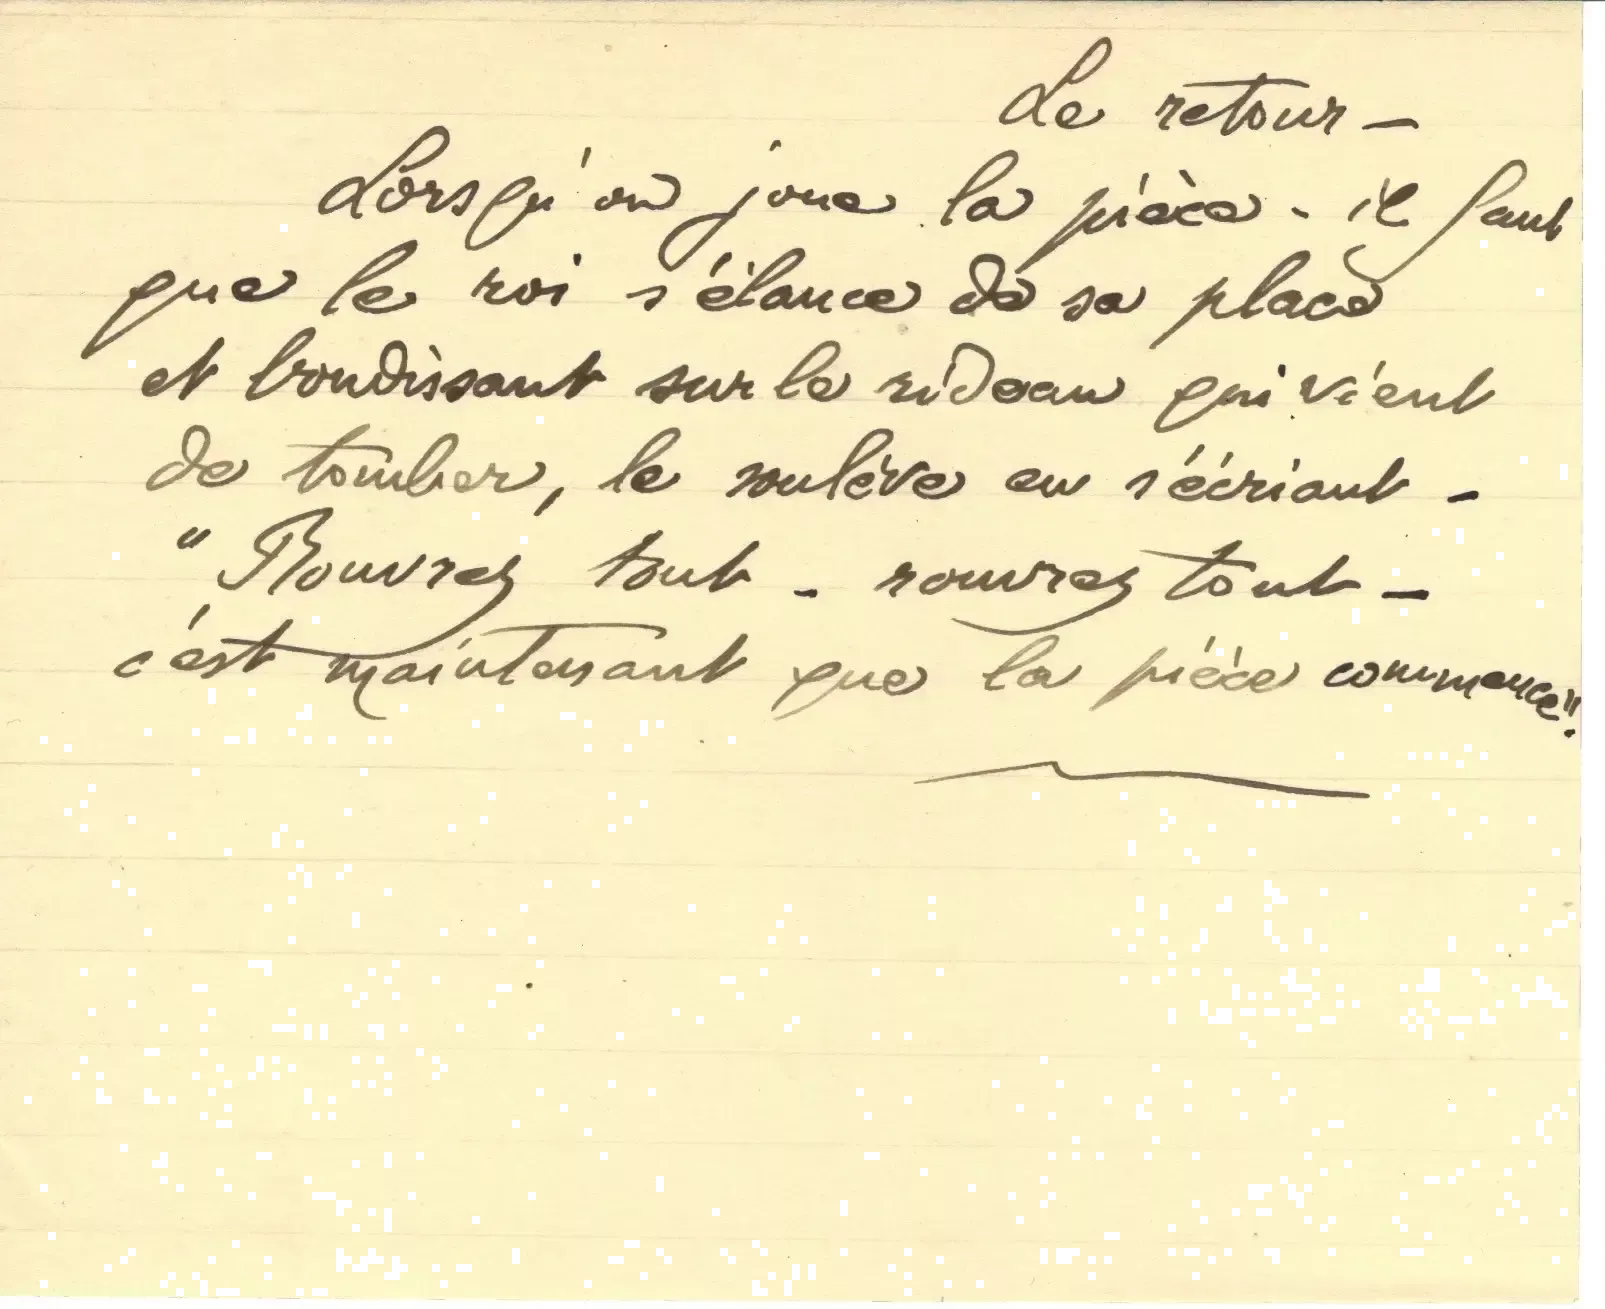 Le retour –
Lorsqu'on joue la pièce - il faut
que le roi s'élance de sa place
et bondissant sur le rideau qui vient
de tomber, le soulève en s'écriant –
"Rouvrez tout - rouvrez tout –
c'est maintenant que la pièce commence".